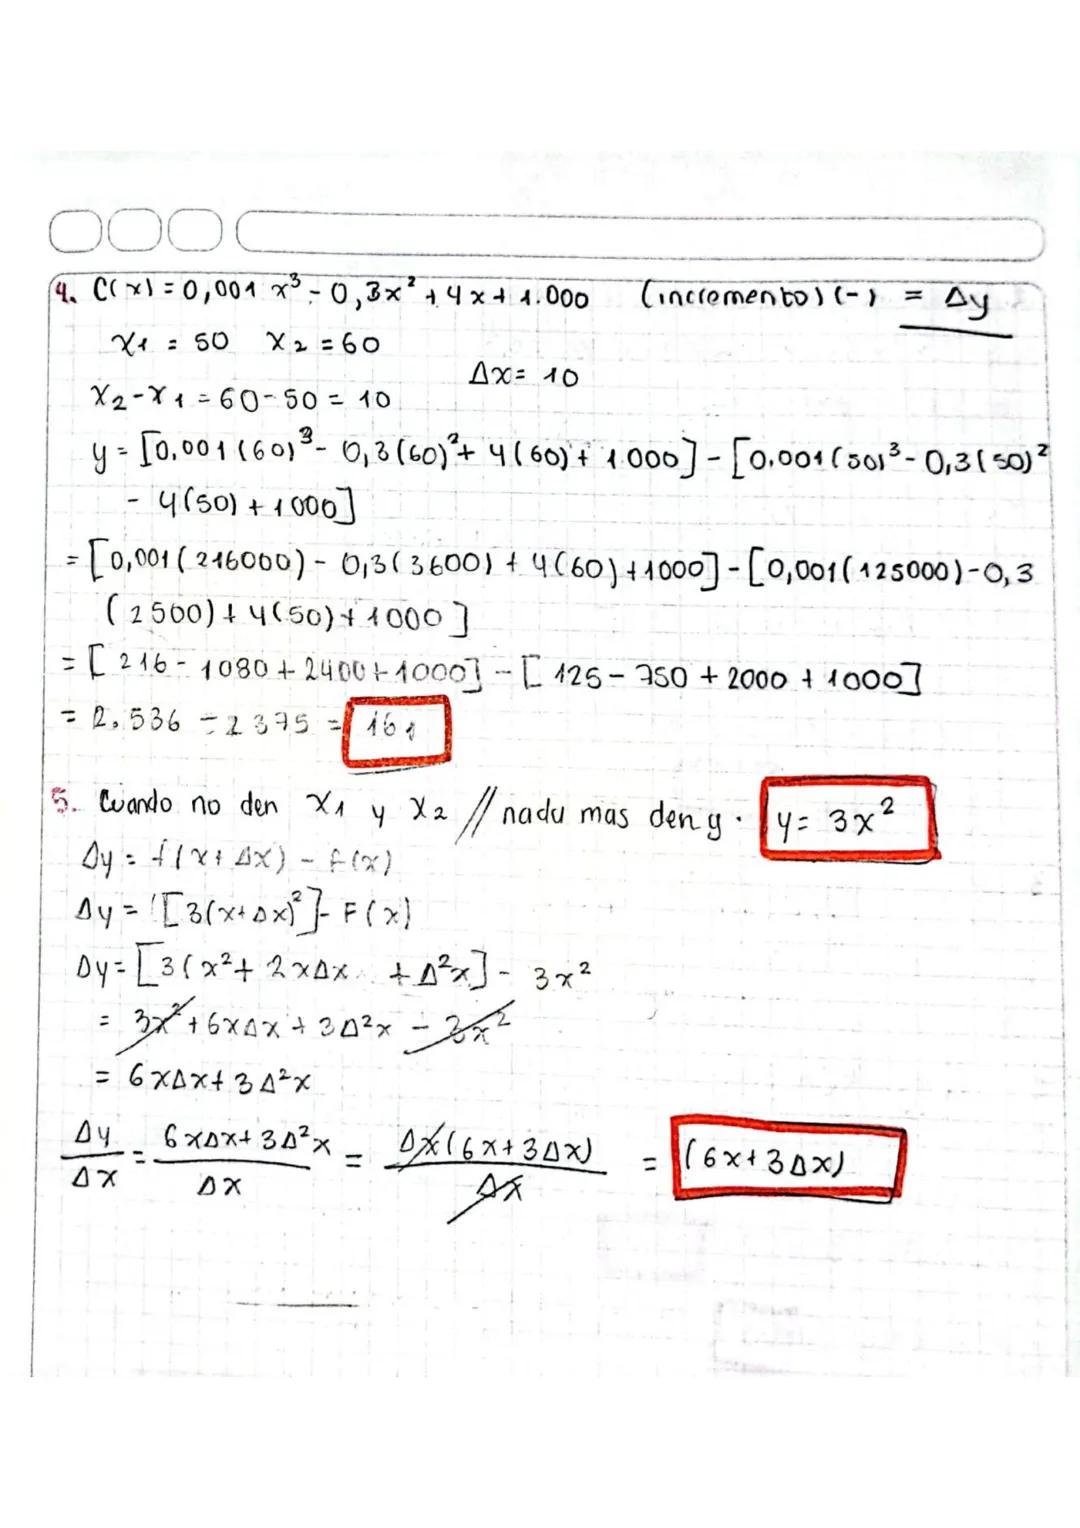 4. C(x) = 0,001 x³ - 0,3x² + 4x + 1.000 (incremento) (-) = Δy
x1 = 50 x2 = 60
Δx = 10
x2 - x1 = 60 - 50 = 10
y = [0,001 (60)³ - 0,3 (60)² + 4(60) + 1.000] - [0,001 (50)³ - 0,3 (50)²
- 4(50) + 1000]
= [0,001 (216000) - 0,3(3600) + 4(60) + 1000] - [0,001(125000) - 0,3
(2500) + 4(50) + 1000]
= [216 - 1080 + 2400 + 1000] - [125 - 750 + 2000 + 1000]
= 2.536 - 2375 = 161
5. Cuando no den x1 y x2 // nadu mas den y. y = 3x²
Δy = f(x + Δx) - f(x)
Δy = [3(x + Δx)²] - F(x)
Δy = [3(x² + 2xΔx + Δ²x] - 3x²
= 3x² + 6xΔx + 3Δ²x - 3x²
= 6xΔx + 3Δ²x
Δy/Δx = 6xΔx + 3Δ²x/Δx = Δx(6x + 3Δx)/Δx = (6x + 3Δx)